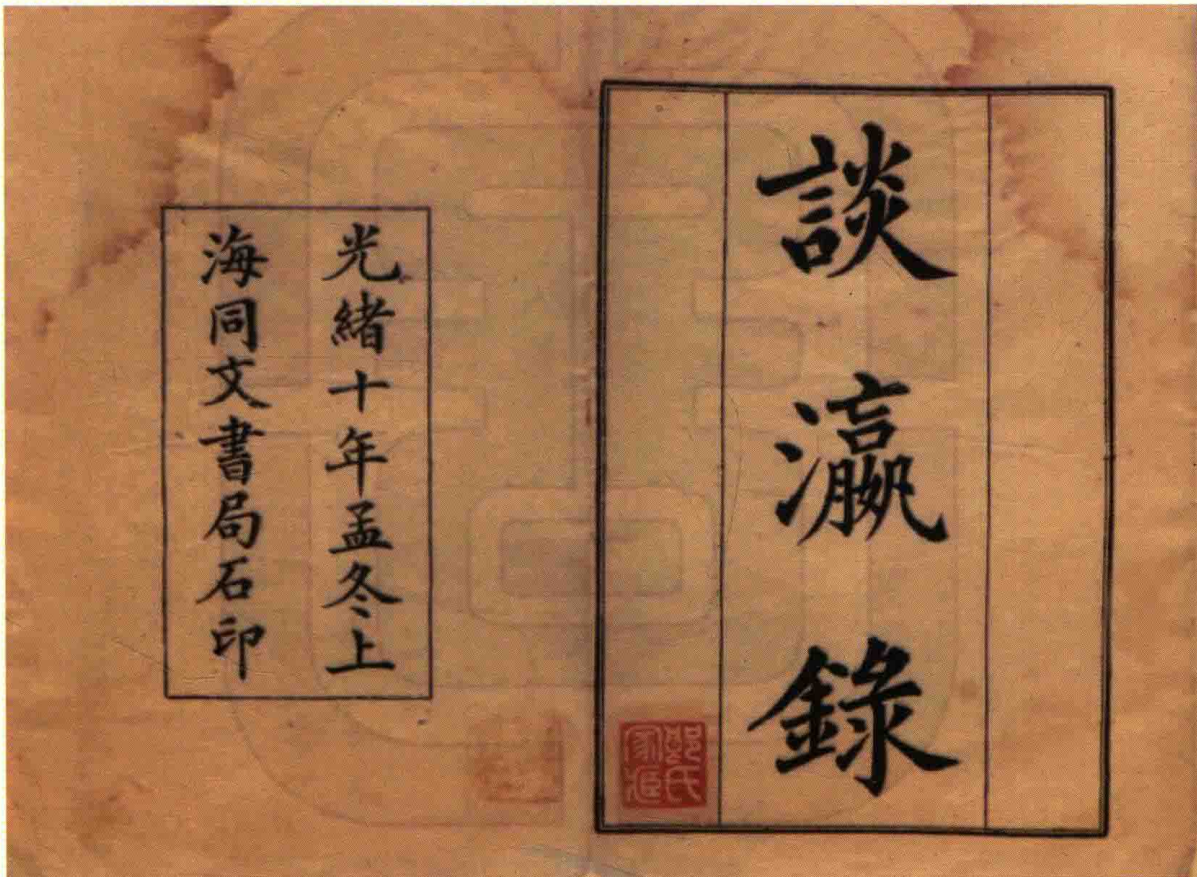 談瀛錄
光緒十年孟冬上
海同文書局石印